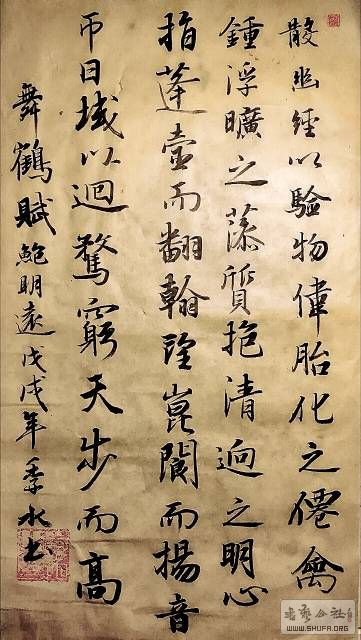 散幽經以驗物偉胎化之僊禽
鍾浮曠之藻質抱清迥之明心
指蓬壺而翻翰望崑閬而揚音
帀日域以迴騖窮天步而高
舞鶴賦鮑明遠戊戌年季水書
WWW.SHUFA.ORG